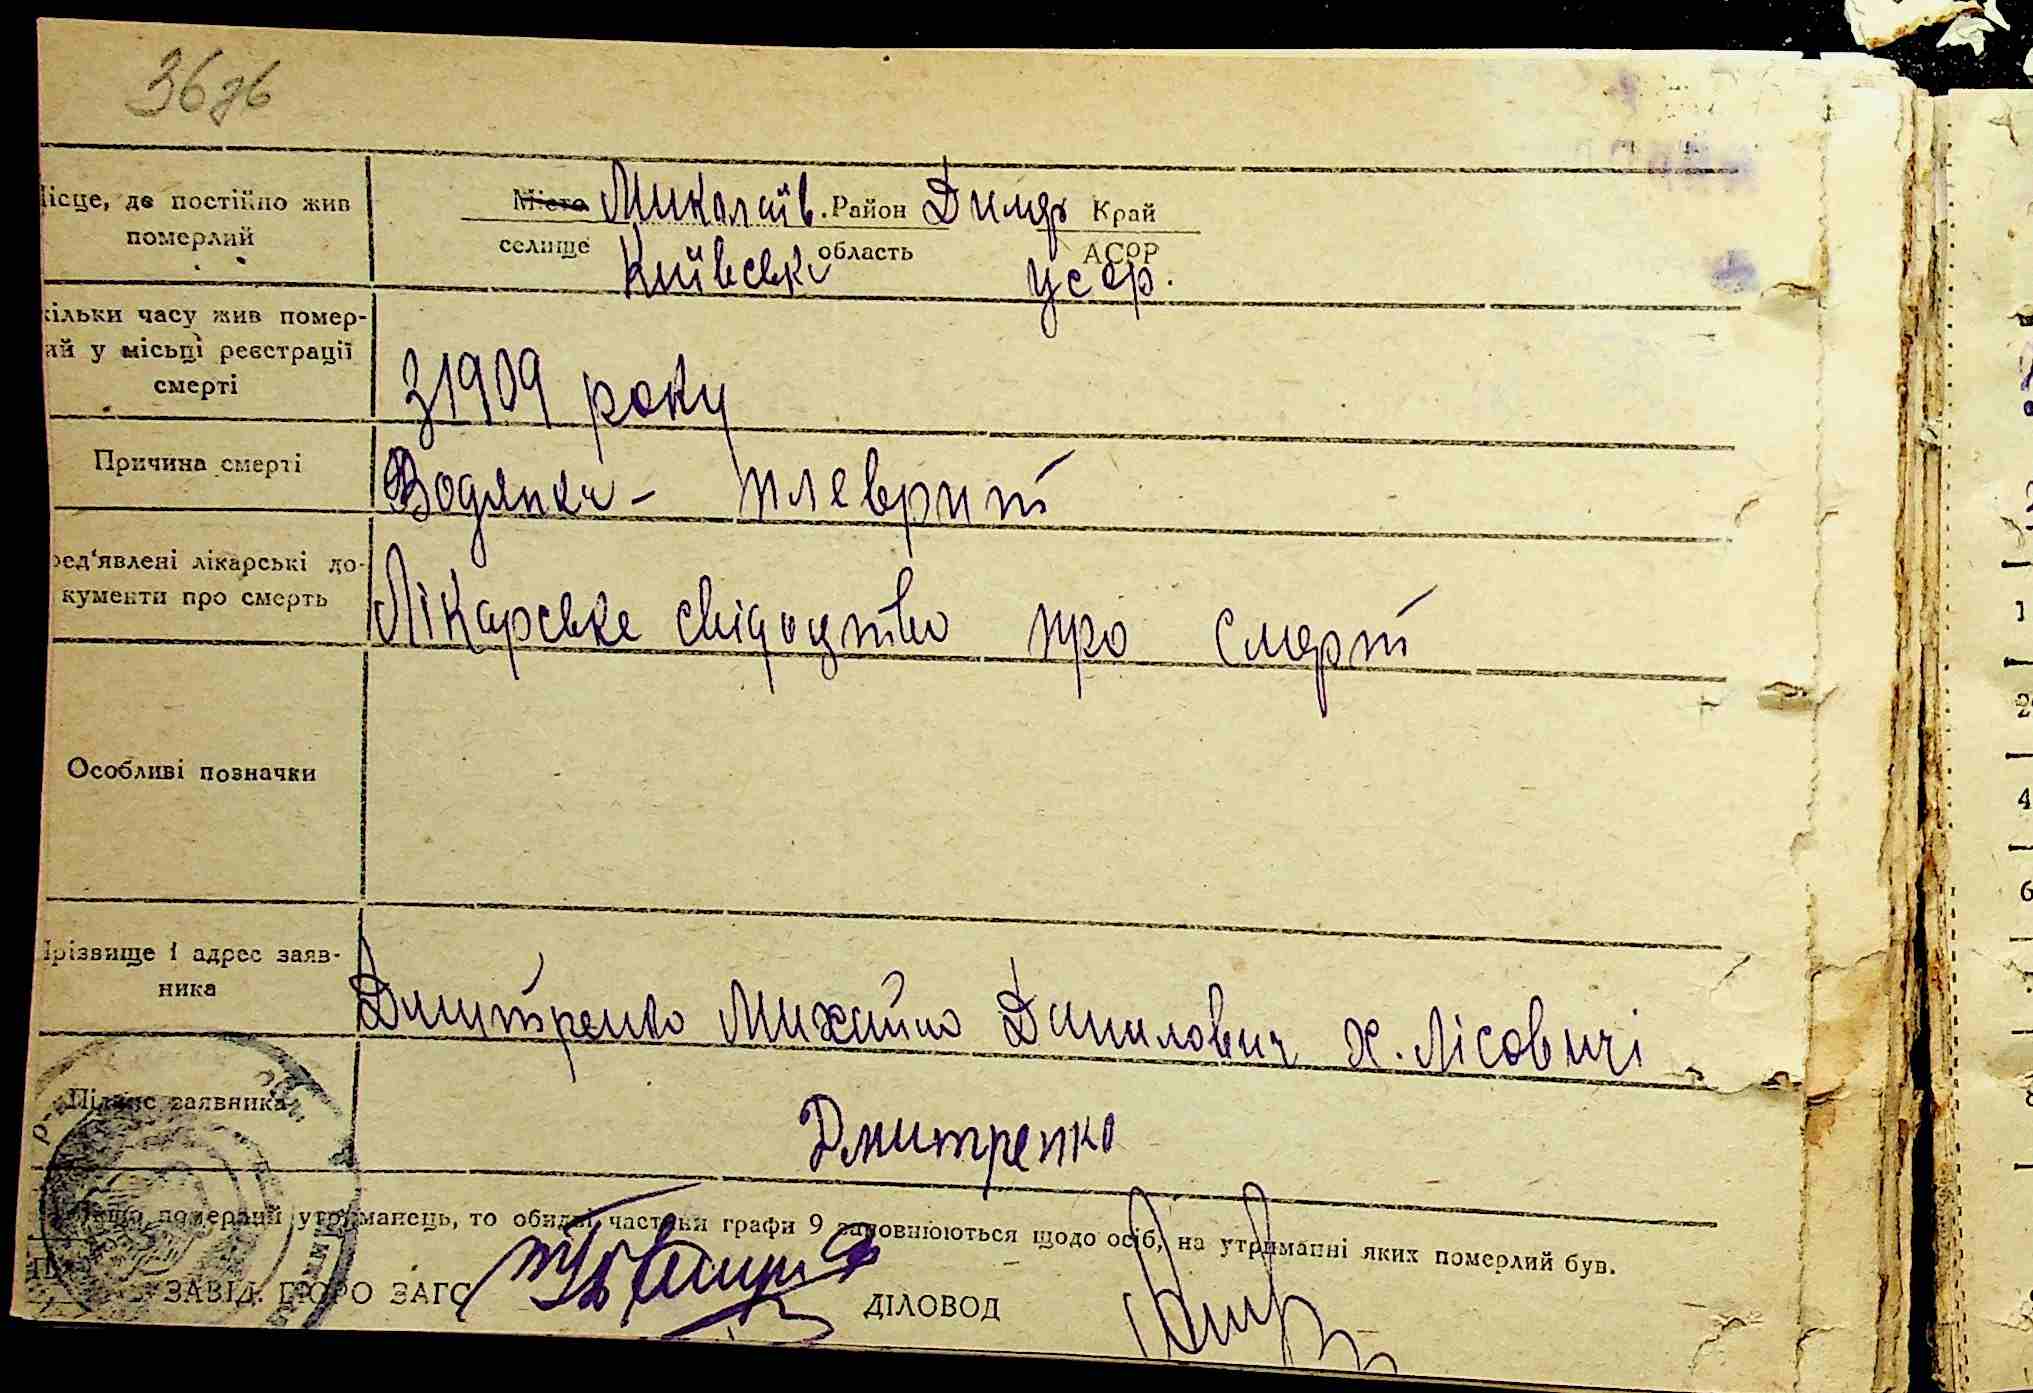 36 зв
ісце, де постійно жив
померлий
Місто Миколаїв. Район Димер Край
селище Київська область АСРР
УСРР.
кільки часу жив помер-
ий у місьці реєстрації
смерті
З 1909 року
Причина смерті
Водянка - плеврит
ред'явлені лікарські до-
кументи про смерть
Лікарське свідоцтво про смерт
Особливі позначки
Прізвище і адрес заяв-
ника
Дмитренко Михайло Данилович х. Лісовичі
Підпис заявника
Дмитренко
померлий утриманець, то обидві частини графи 9 заповнюються щодо осіб, на утриманні яких померлий був.
ЗАВІД. БЮРО ЗАГС
ДІЛОВОД